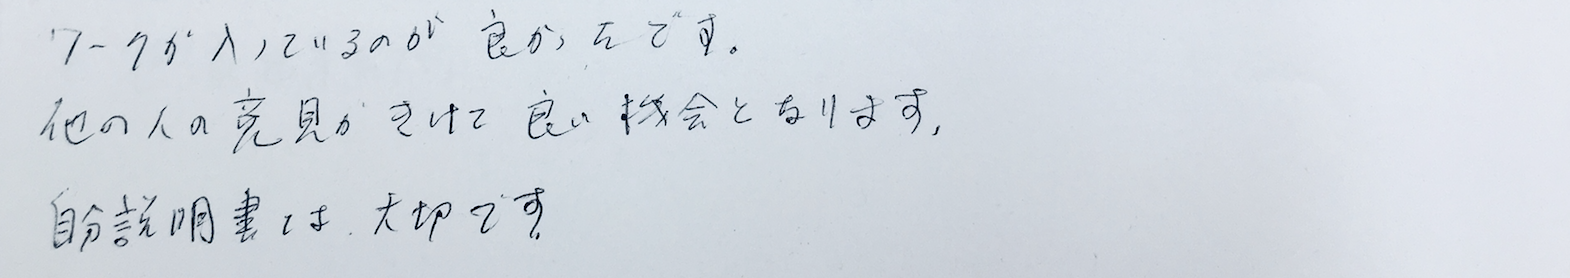 ワークが入っているのが良かったです。
他の人の意見がきけて良い機会となります。
自分説明書は、大切です。